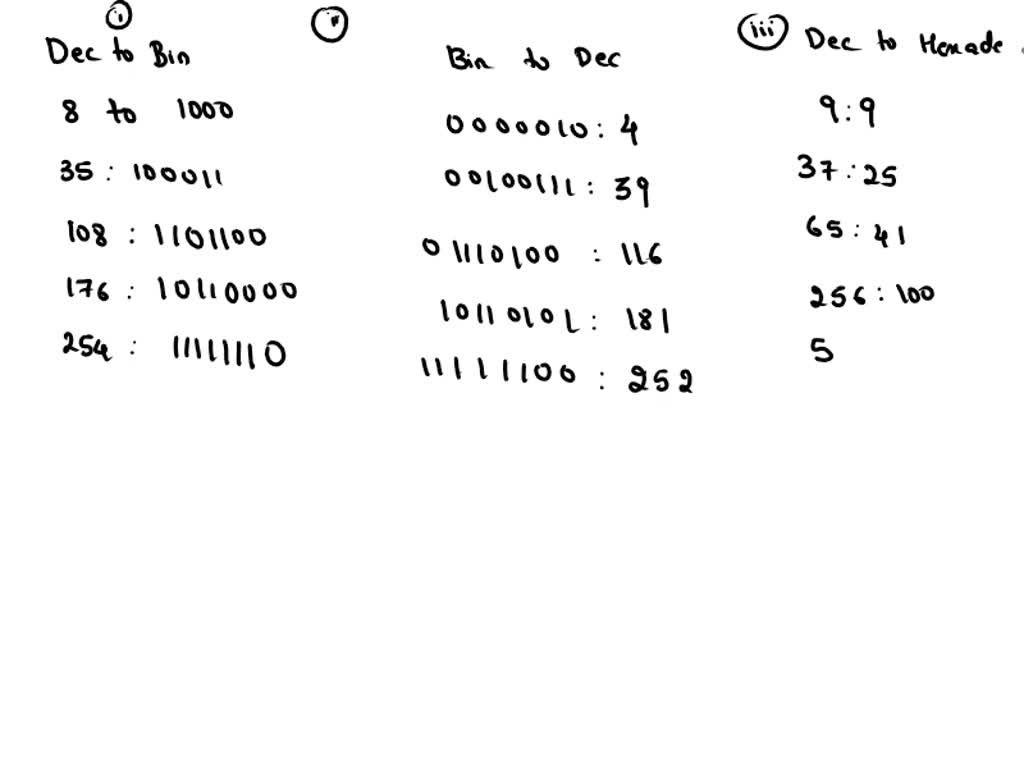 i
Dec to Bin
8 to 1000
35 : 100011
108 : 1101100
176 : 10110000
254 : 11111110
ii
Bin to Dec
0000010 : 4
00100111 : 39
01110100 : 116
10110101 : 181
11111100 : 252
iii Dec to Hexade
9 : 9
37 : 25
65 : 41
256 : 100
5